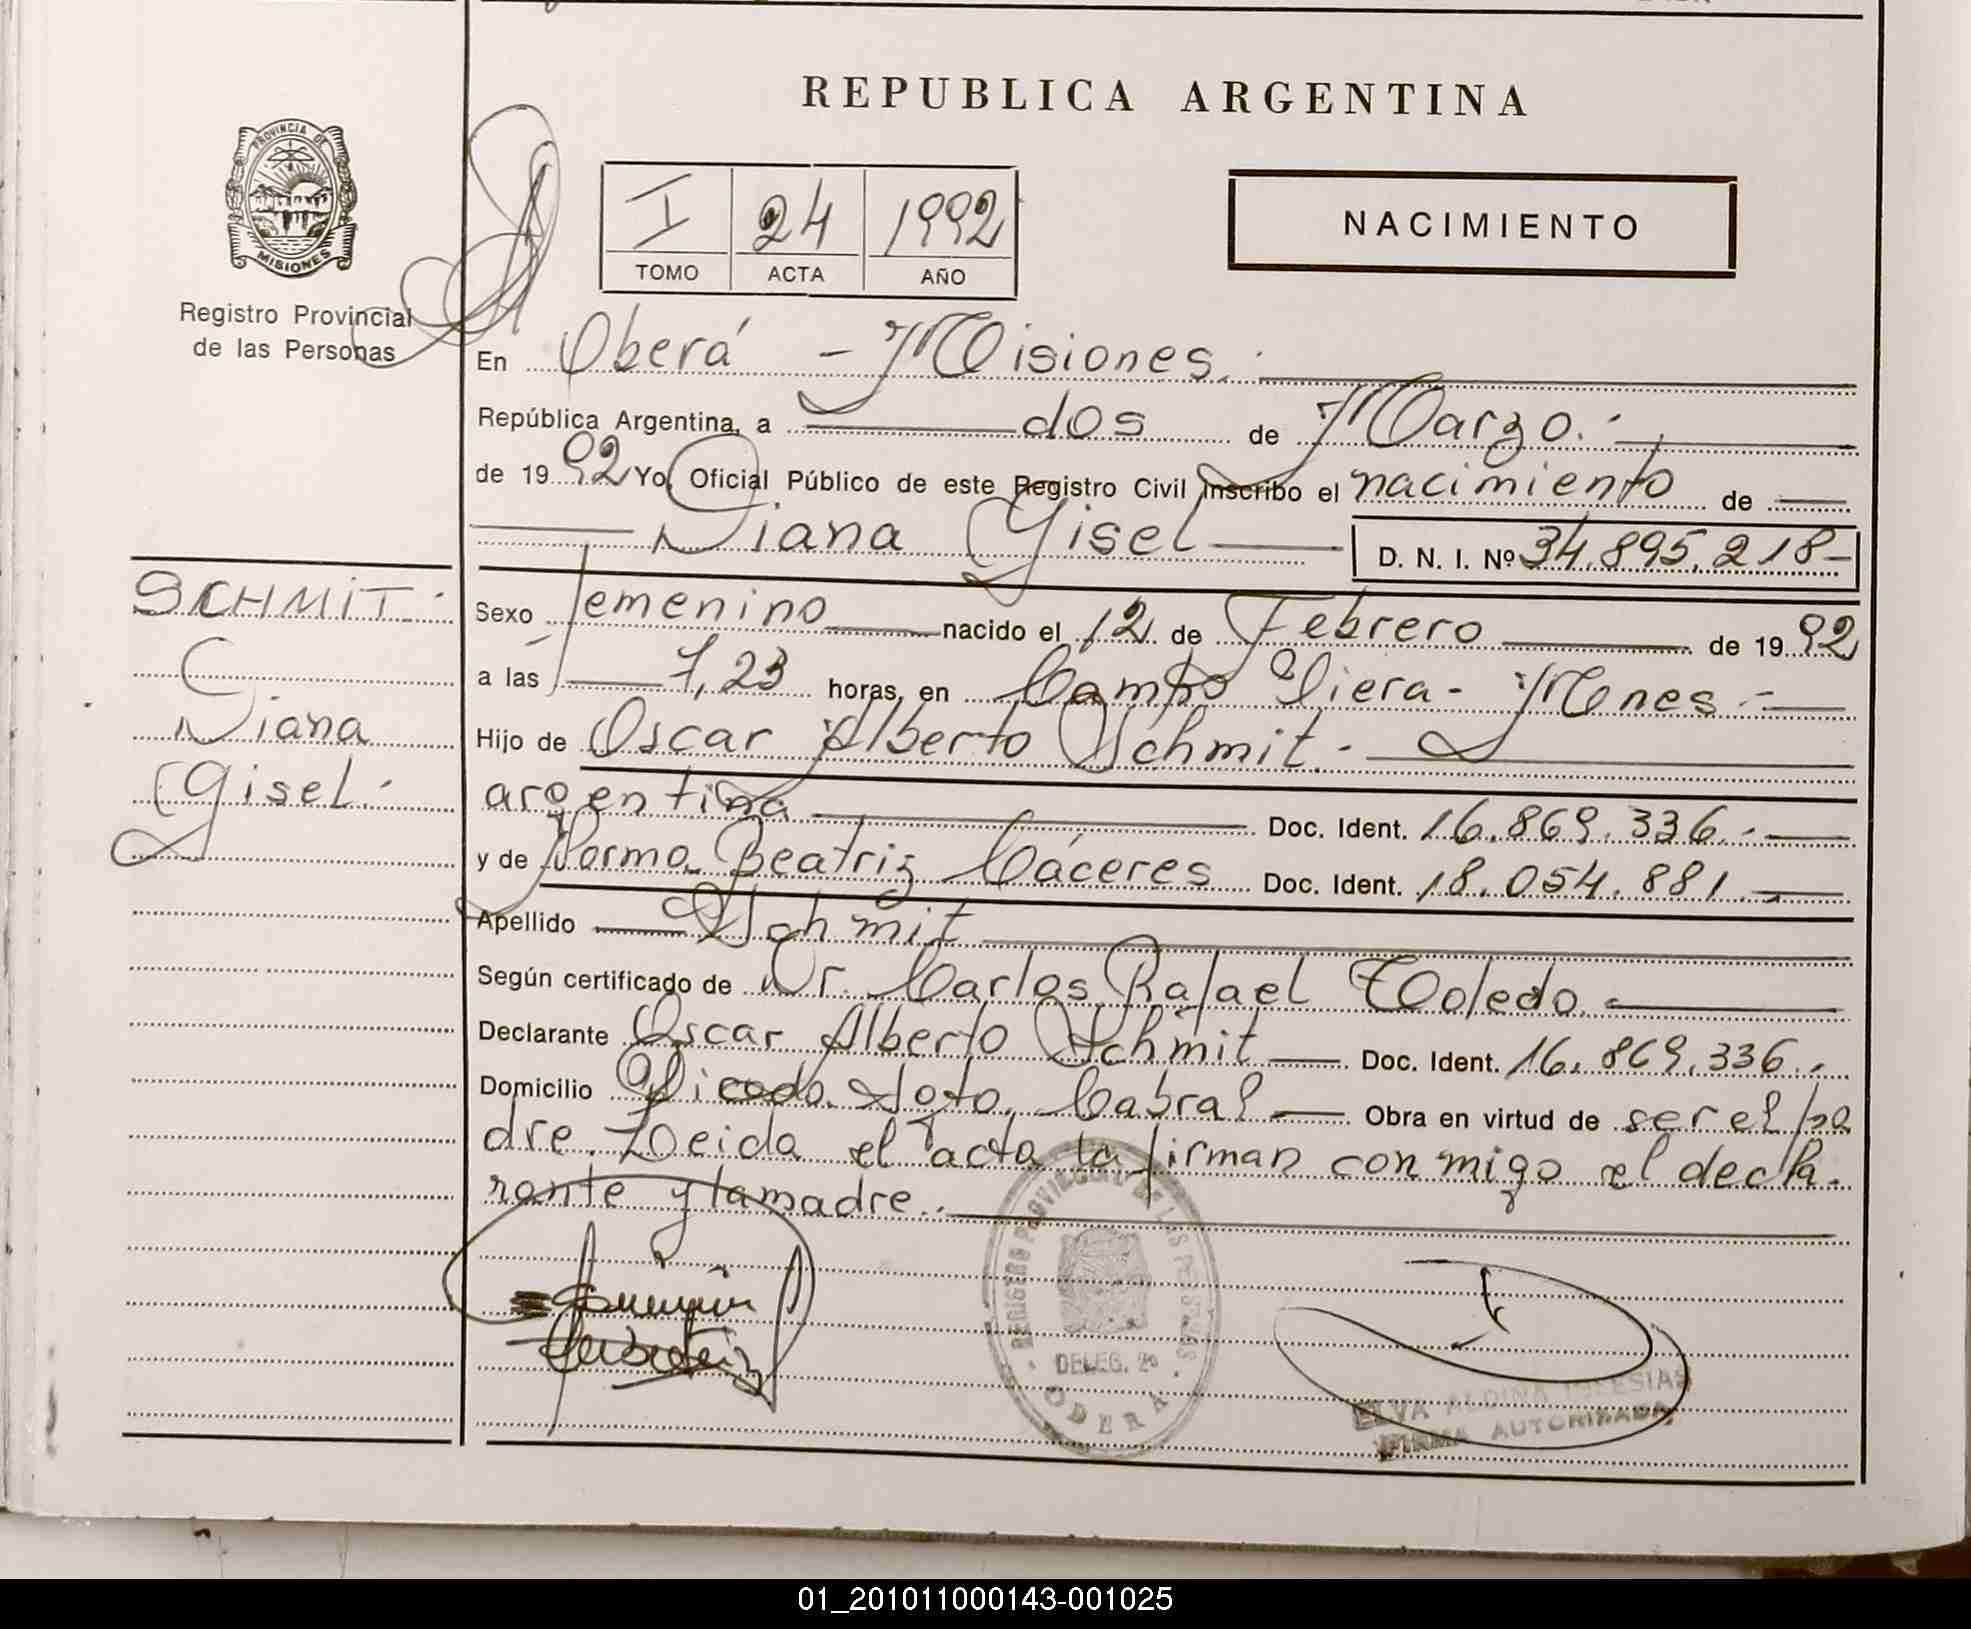 REPUBLICA ARGENTINA
PROVINCIA DE
MISIONES
Registro Provincial
de las Personas
I 24 1992
TOMO ACTA AÑO
NACIMIENTO
En Oberá - Misiones.
República Argentina, a dos de Marzo.
de 1992 Yo Oficial Público de este Registro Civil inscribo el nacimiento de
Diana Gisel D. N. I. Nº 34.895.218-
SCHMIT.
Diana
Gisel.
Sexo femenino nacido el 12 de Febrero de 1992
a las 7,23 horas, en Campo Viera - Mnes.-
Hijo de Oscar Alberto Schmit.-
argentina Doc. Ident. 16.869.336.-
y de Norma Beatriz Cáceres Doc. Ident. 18.054.881.-
Apellido Schmit
Según certificado de Dr. Carlos Rafael Toledo.
Declarante Oscar Alberto Schmit Doc. Ident. 16.869.336.-
Domicilio Soto, Cabral Obra en virtud de ser el pa
dre. Leida el acta la firman conmigo el decla-
rante y la madre..
REGISTRO PROVINCIAL DE LAS PERSONAS
DELEG. 2º
OBERA
ELVA ALDINA IGLESIAS
FIRMA AUTORIZADA
01_201011000143-001025